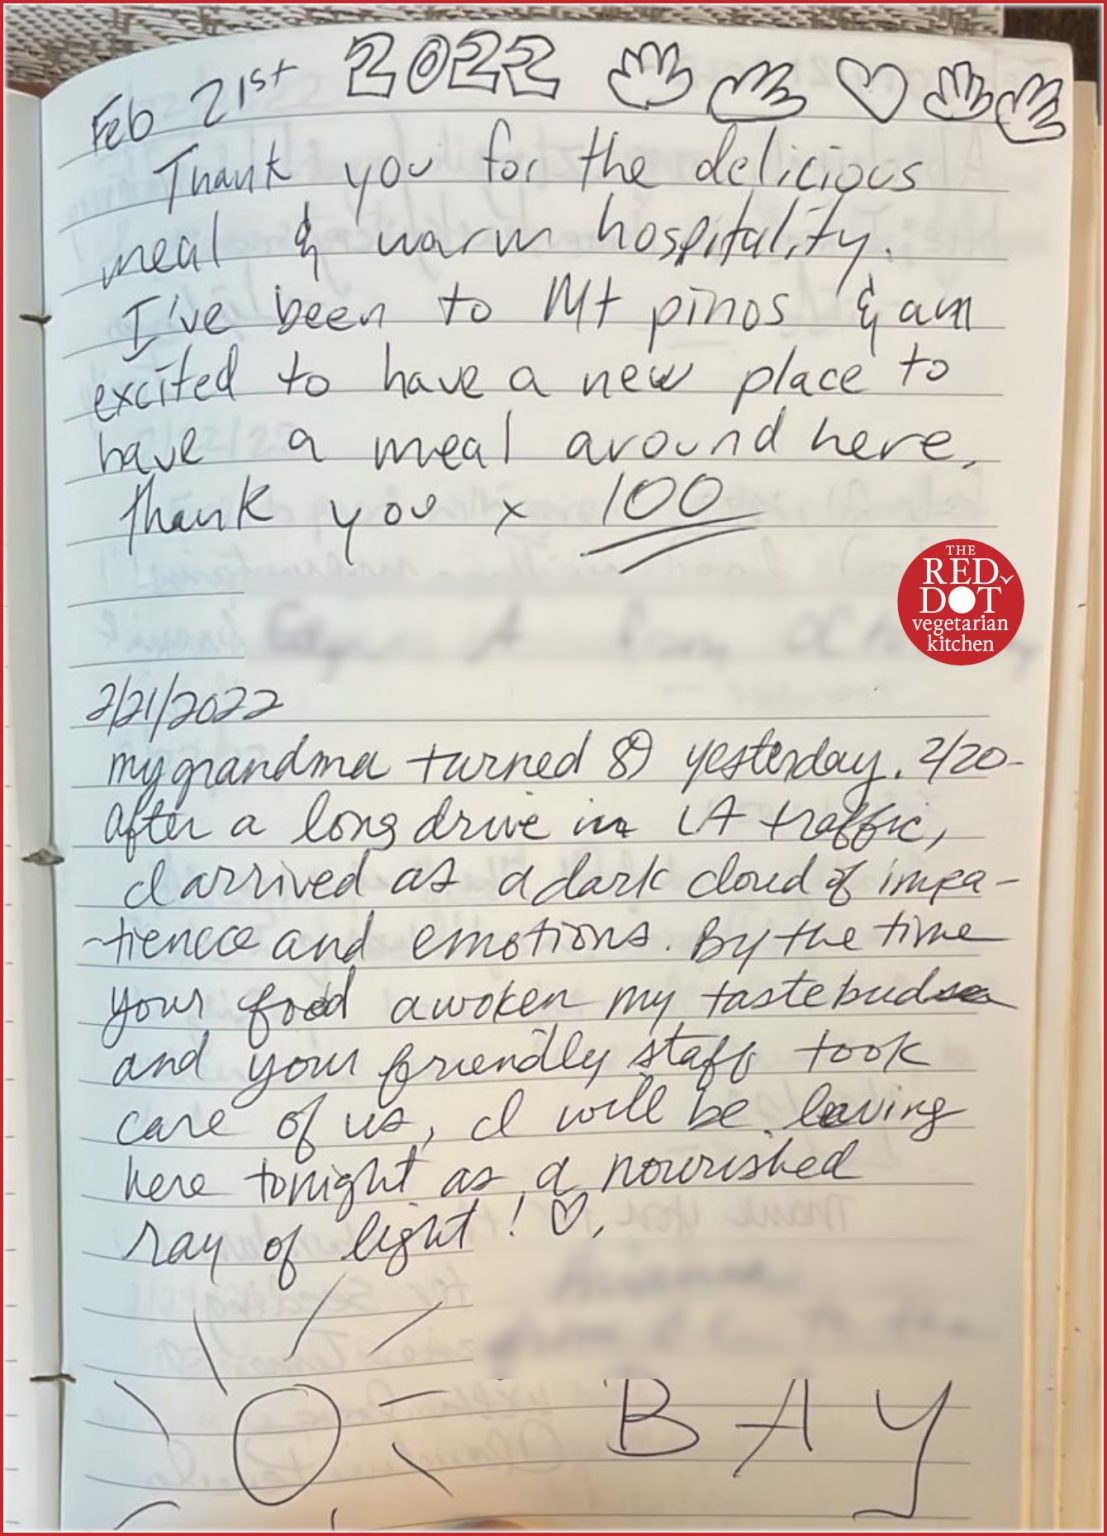 Feb 21st 2022
Thank you for the delicious
meal & warm hospitality.
I've been to Mt pinos & am
excited to have a new place to
have a meal around here.
Thank you x 100
THE
RED
DOT
vegetarian
kitchen
2/21/2022
my grandma turned yesterday. 2/20-
After a long drive in LA traffic,
I arrived as a dark cloud of impa-
-tienece and emotions. By the time
your food awoken my tastebuds
and your friendly staff took
care of us, I will be leaving
here tonight as a nourished
ray of light! ♡.
BAY